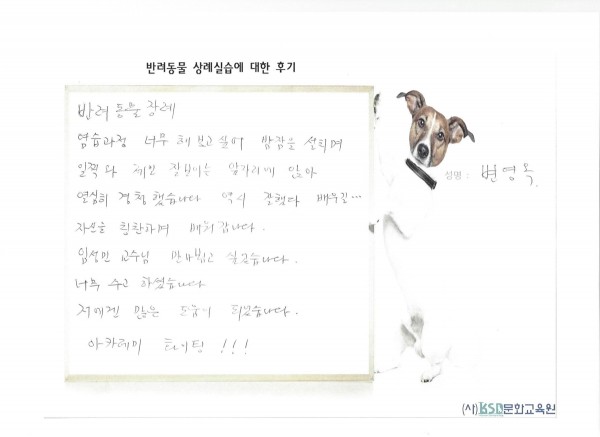 반려동물 상례실습에 대한 후기
반려동물 장례
염습과정 너무 해보고 싶어 밤잠을 설치며
일찍 와 제일 잘보이는 앞자리에 앉아
열심히 경청했습니다 역시 잘했다 배우길...
자신을 칭찬하며 배워갑니다.
임성민 교수님 만나뵙고 싶었습니다.
너무 수고 하셨습니다
저에겐 많은 도움이 되었습니다.
아카데미 화이팅!!!
성명 : 변영옥.
(사)KSD문화교육원